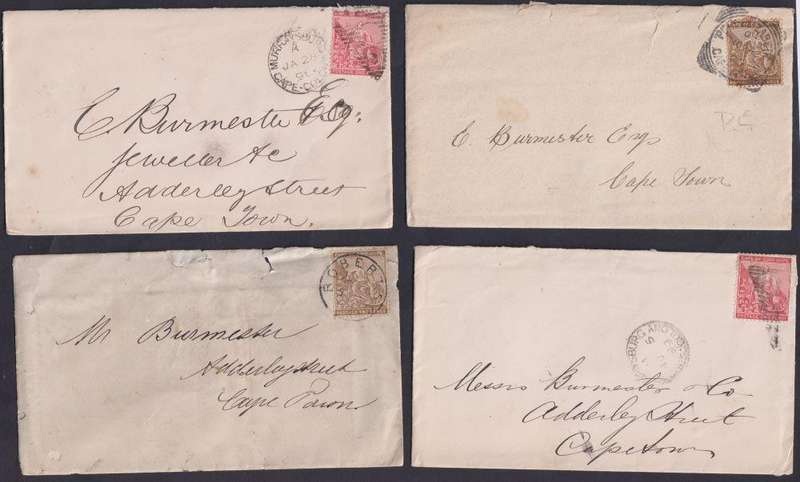 MURRAYSBURG
A
JA 28
CAPE-COL
C Burmester Esq.
Jeweller &c
Adderley Street
Cape Town.
E. Burmester Esq
Cape Town
ROBERT
Mr Burmester
Adderley Street
Cape Town
Messrs Burmester & Co
Adderley Street
Capetown